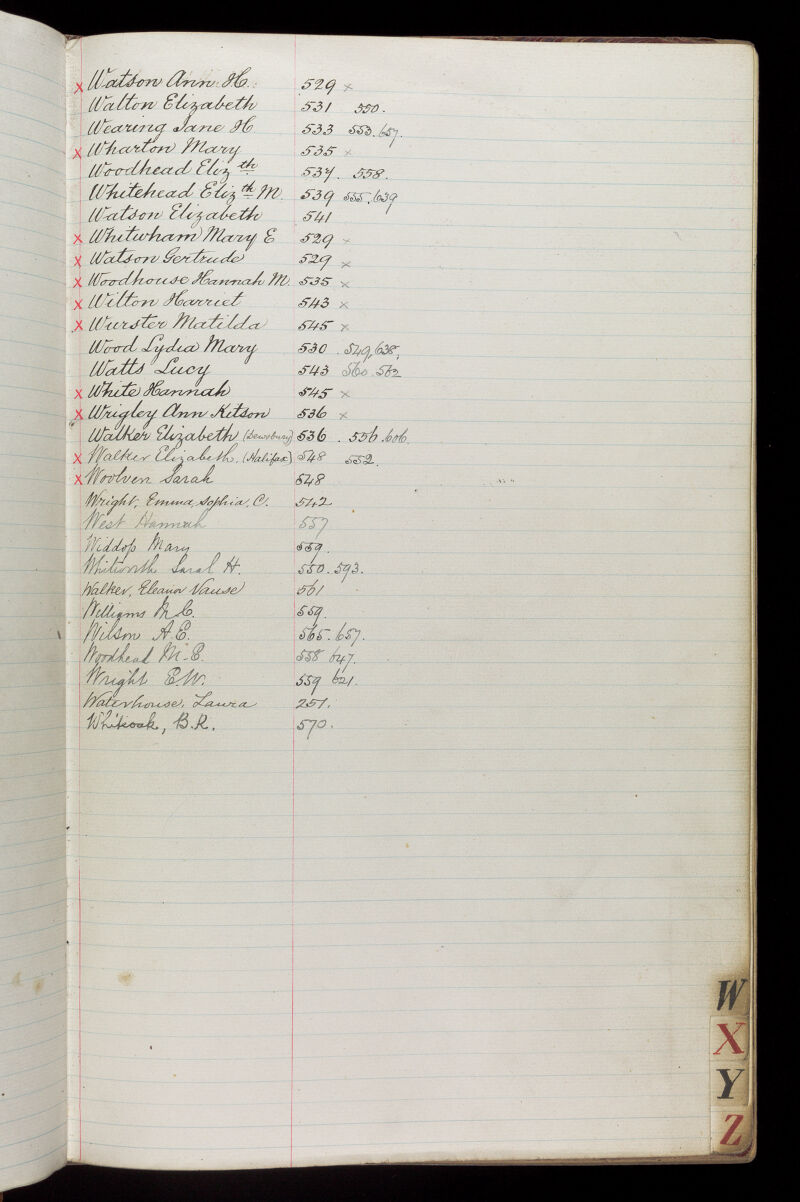 x Watson Ann H. 529 x
Walton Elizabeth 531 550.
Wearing Jane H 533 553.657.
x Wharton Mary 535 x
Woodhead Eliz th 537. 558.
Whitehead Eliz th M. 539 555.639
Watson Elizabeth 541
x Whitwham Mary E 529 x
x Watson Gertrude 529 x
x Woodhouse Hannah M. 535 x
x Wilton Harriet 543 x
x Wurster Matilda 545 x
Wood Lydia Mary 530. 549,638,
Watts Lucy 543 560.562
x White Hannah 545 x
x Wrigley Ann Kitson 536 x
Walker Elizabeth (Dewsbury) 536. 556.606.
x Walker Elizabeth. (Halifax) 548 552.
x Woolven Sarah 548
Wright, Emma, Sophia, C. 542
West Hannah 557
Widdop Mary 559.
Whitworth Saral H. 550.593.
Walker, Eleanor Vause 561
Williams M.C. 559.
Wilson A.E. 565.657.
Woodhead M.E. 558 647.
Wright E.W. 559 621.
Waterhouse, Laura 251.
Whiteoak, B.R. 570.
W
X
Y
Z